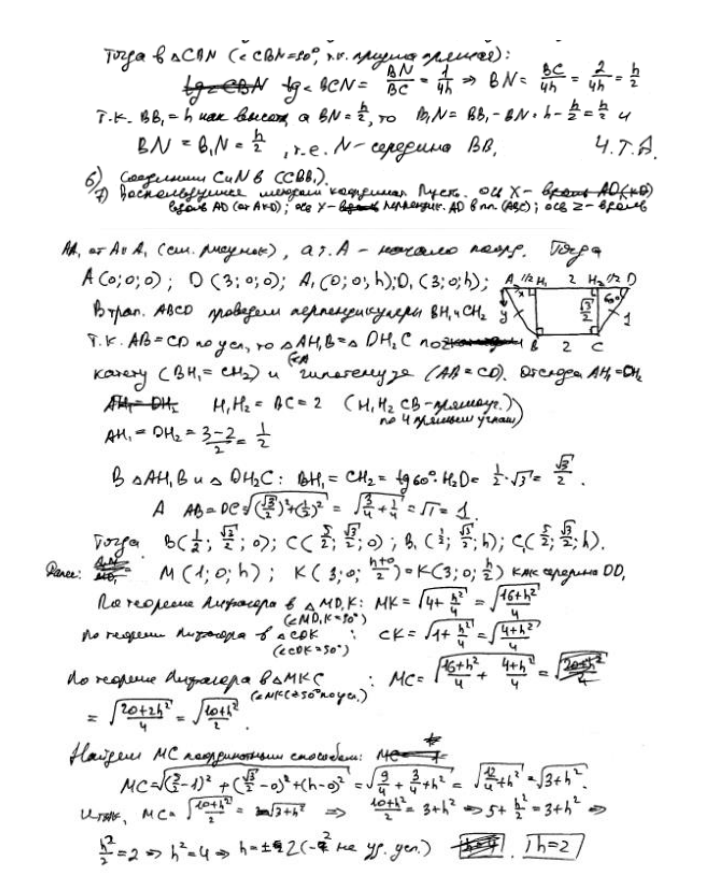 Тогда в △CBN (∠CBN=90°, т.к. призма прямая):
tg∠BCN = BN/BC = 1/4h ⇒ BN = BC/4h = 2/4h = h/2
Т.к. BB₁ = h как высота, а BN = h/2, то B₁N = BB₁ - BN = h - h/2 = h/2 и
BN = B₁N = h/2, т.е. N - середина BB₁ Ч.Т.Д.
6) Соединим C и N в (CBB₁).
7) Воспользуемся методом координат. Пусть ось X -
вдоль AD (от A к D); ось Y - перпендик. AD в пл. (ABC); ось Z - вдоль
AA₁ от A к A₁ (см. рисунок), а т. A - начало коорд. Тогда
A(0;0;0); D(3;0;0); A₁(0;0;h); D₁(3;0;h);
A 1/2 H₁ 2 H₂ 1/2 D
x 60°
y √3/2 1
B 2 C
В трап. ABCD проведём перпендикуляры BH₁ и CH₂
Т.к. AB=CD по усл, то △AH₁B = △DH₂C по
катету (BH₁=CH₂) и гипотенузе (AB=CD). Отсюда AH₁=DH₂
AH₁=DH₂ H₁H₂ = BC = 2 (H₁H₂CB - прямоуг.)
по 4 прямым углам)
AH₁ = DH₂ = 3-2/2 = 1/2
В △AH₁B и △DH₂C: BH₁ = CH₂ = tg60°·H₂D = 1/2·√3 = √3/2.
А AB=DC=√((√3/2)²+(1/2)²) = √(3/4+1/4) = √1 = 1.
Тогда B(1/2; √3/2; 0); C(5/2; √3/2; 0); B₁(1/2; √3/2; h); C₁(5/2; √3/2; h).
Далее: M(1;0;h); K(3;0; h+0/2) = K(3;0; h/2) как середина DD₁
По теореме Пифагора в △MD₁K: MK = √(4+h²/4) = √(16+h²/4)
(∠MD₁K=90°)
По теореме Пифагора в △CDK: CK = √(1+h²/4) = √(4+h²/4)
(∠CDK=90°)
По теореме Пифагора в △MKC : MC = √(16+h²/4 + 4+h²/4) =
(∠MKC=90° по усл.)
= √(20+2h²/4) = √(10+h²/2).
Найдём MC координатным способом:
MC=√((5/2-1)² + (√3/2-0)² + (h-0)²) = √(9/4+3/4+h²) = √(12/4+h²) = √(3+h²).
Итак, MC = √(10+h²/2) = √(3+h²) ⇒ 10+h²/2 = 3+h² ⇒ 5+h²/2 = 3+h² ⇒
h²/2 = 2 ⇒ h² = 4 ⇒ h = ±2 (-2 не уд. усл.) h=2